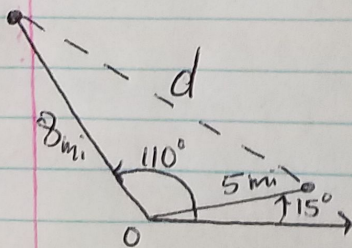 d
8mi
110°
5 mi
15°
0